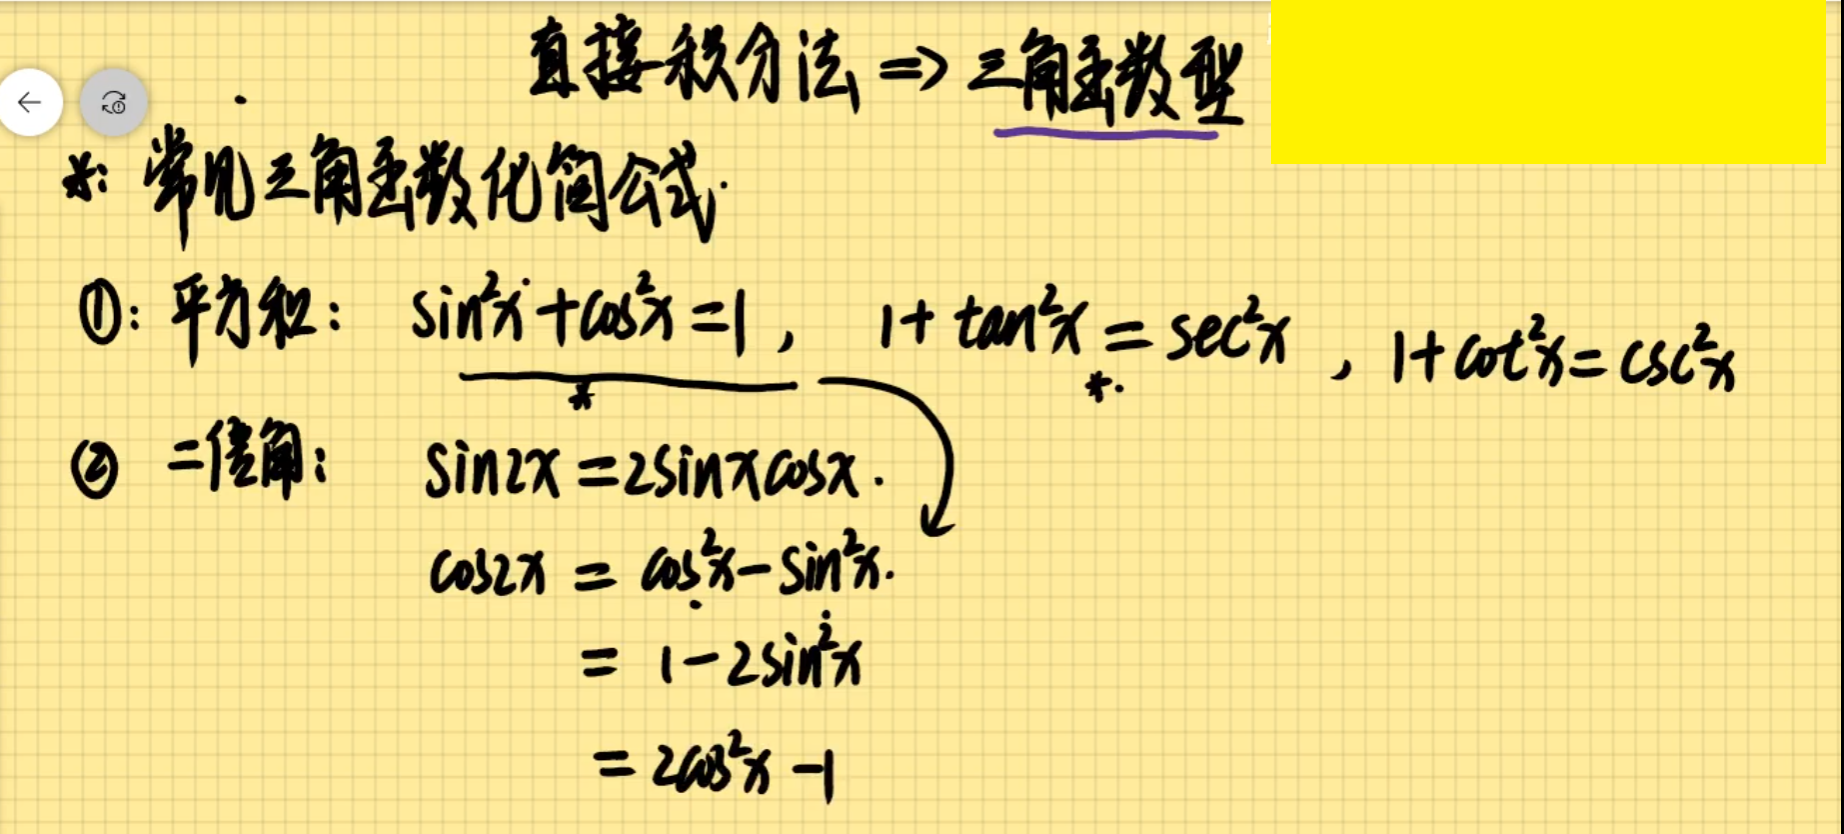 直接积分法 => 三角函数型
*: 常见三角函数化简公式.
①: 平方和: sin²x+cos²x=1, 1+tan²x=sec²x, 1+cot²x=csc²x
② 二倍角: sin2x=2sinxcosx.
cos2x = cos²x-sin²x.
= 1-2sin²x
= 2cos²x-1